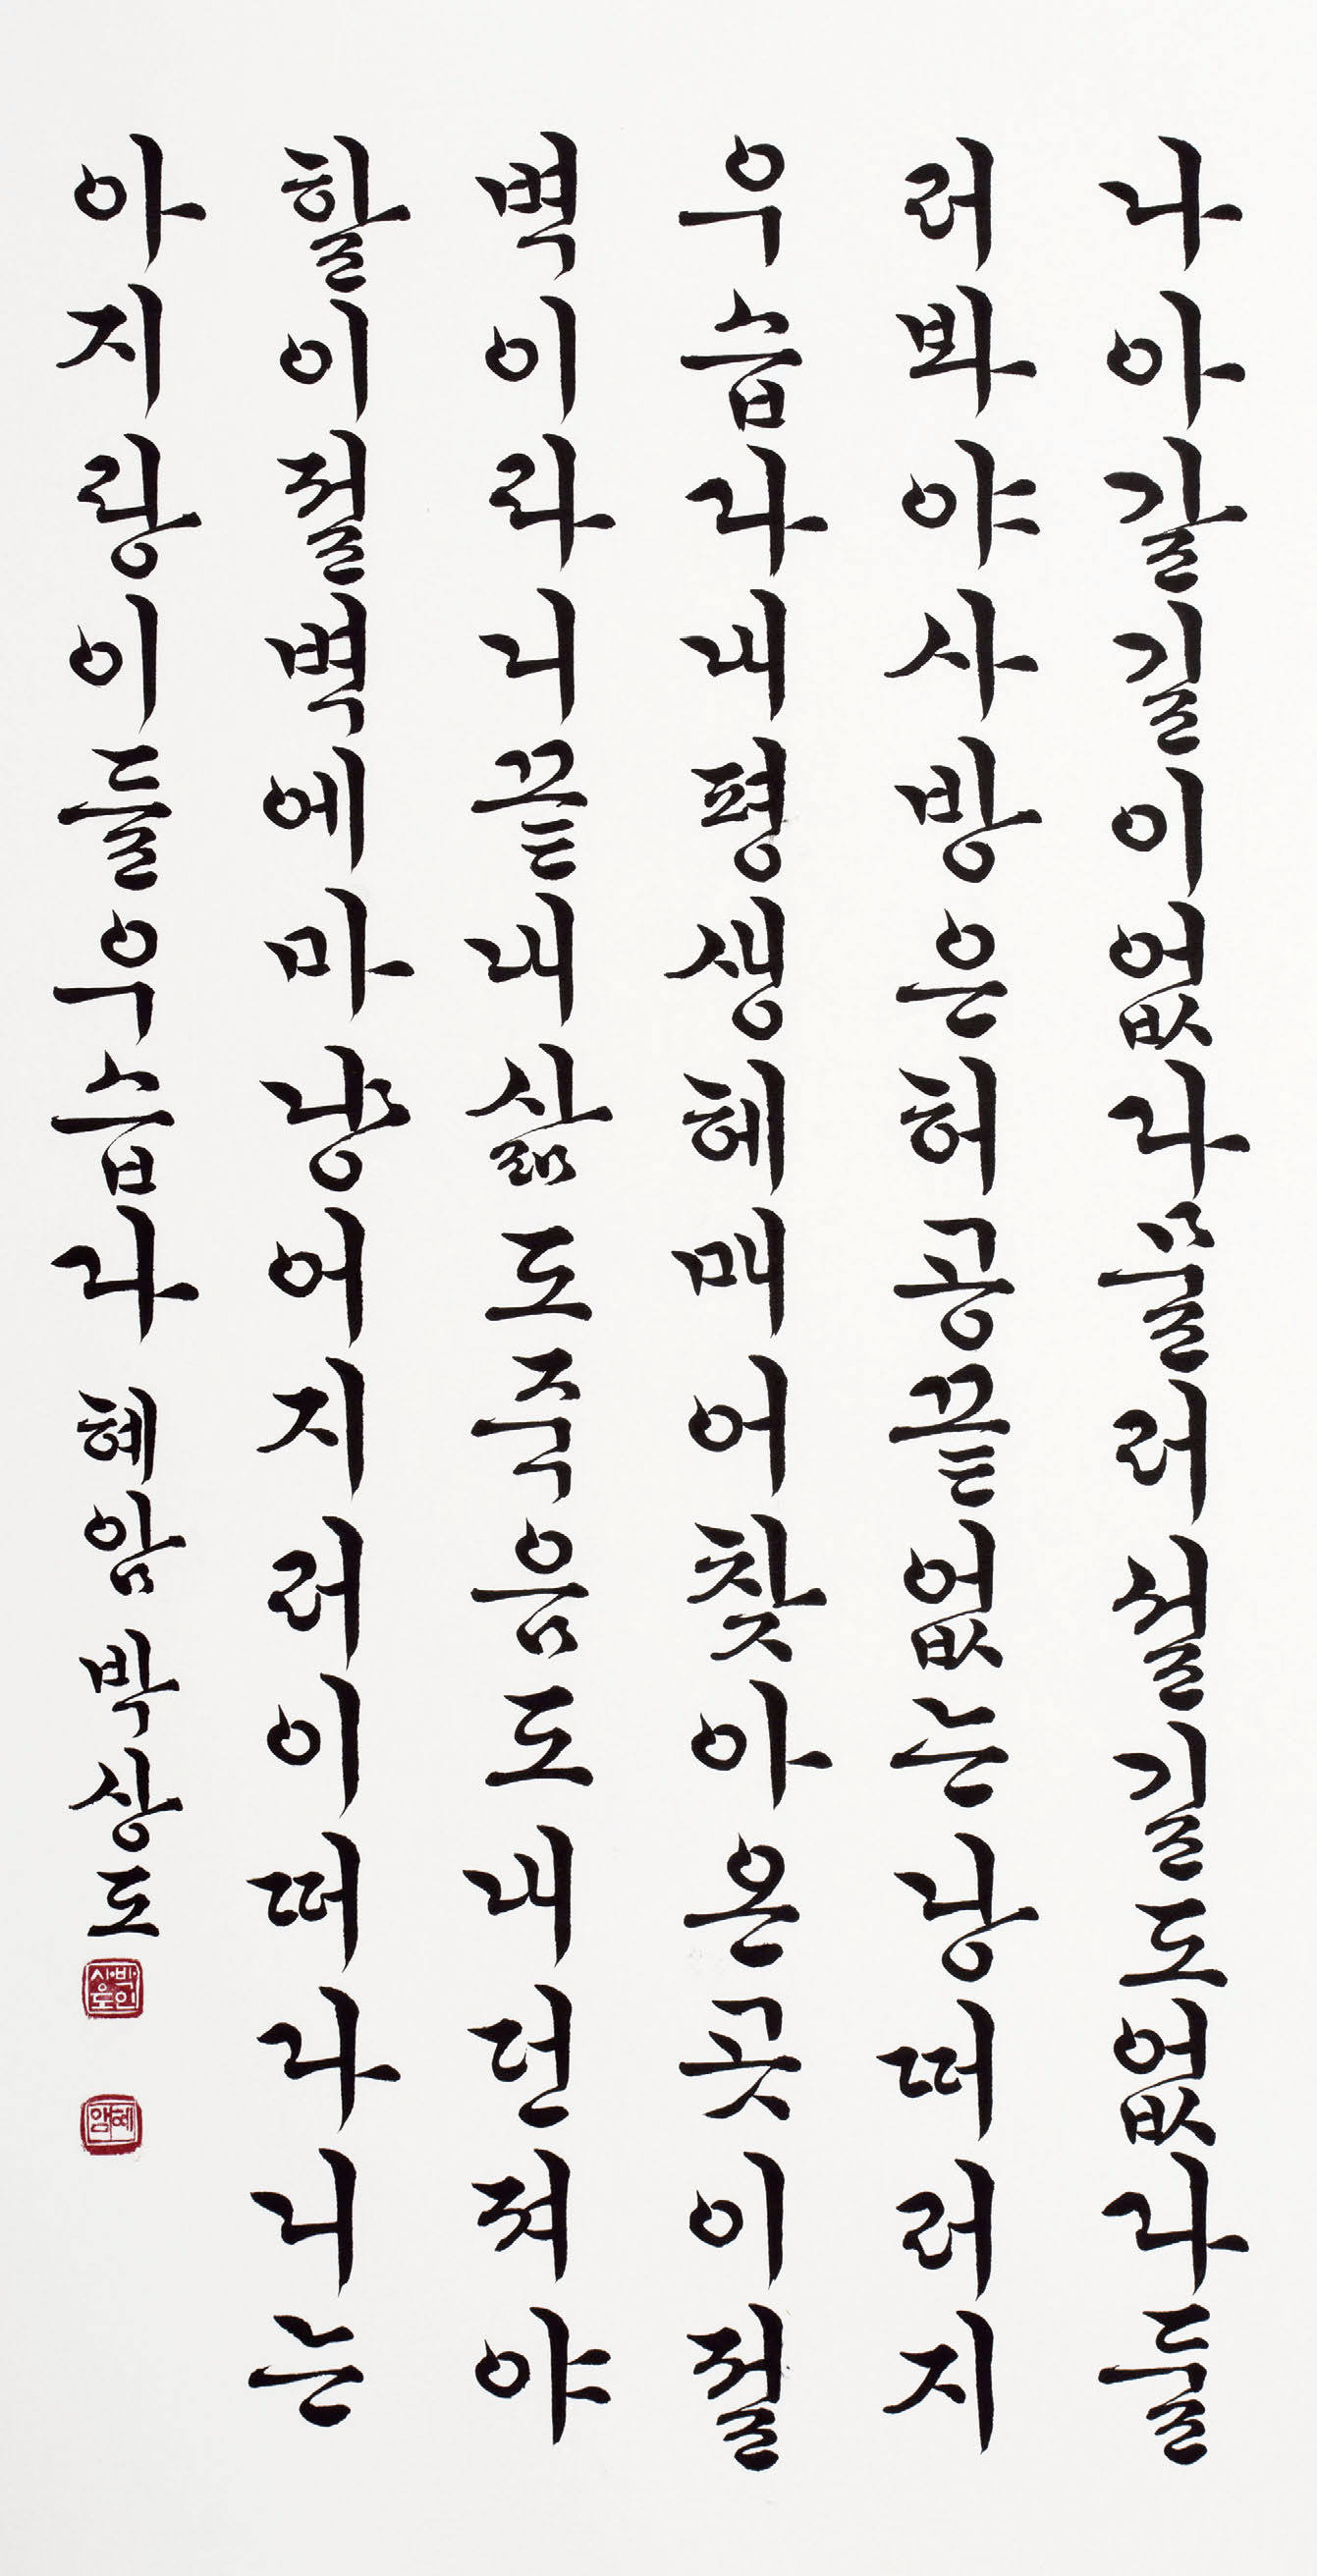 나아갈길이없다물러설길도없다둘
러봐야사방은허공끝없는낭떠러지
우습다내평생헤매어찾아온곳이절
벽이라니끝내삶도죽음도내던져야
할이절벽에마냥어지러이떠다니는
아지랑이들우습다 혜암 박상도
혜암